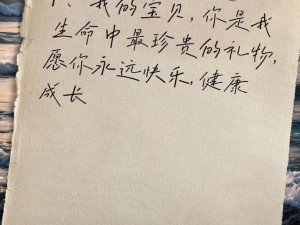 1、我的宝贝,你是我
生命中最珍贵的礼物,
愿你永远快乐,健康
成长